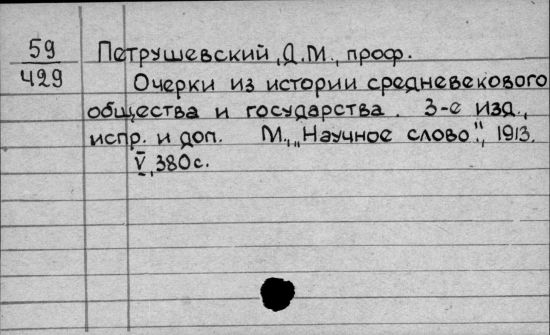 59 Петрушевский, Д.М., проф.
429 Очерки из истории средневекового
общества и государства. 3-е изд.,
испр. и доп. М., „Научное слово", 1913.
V, 380с.